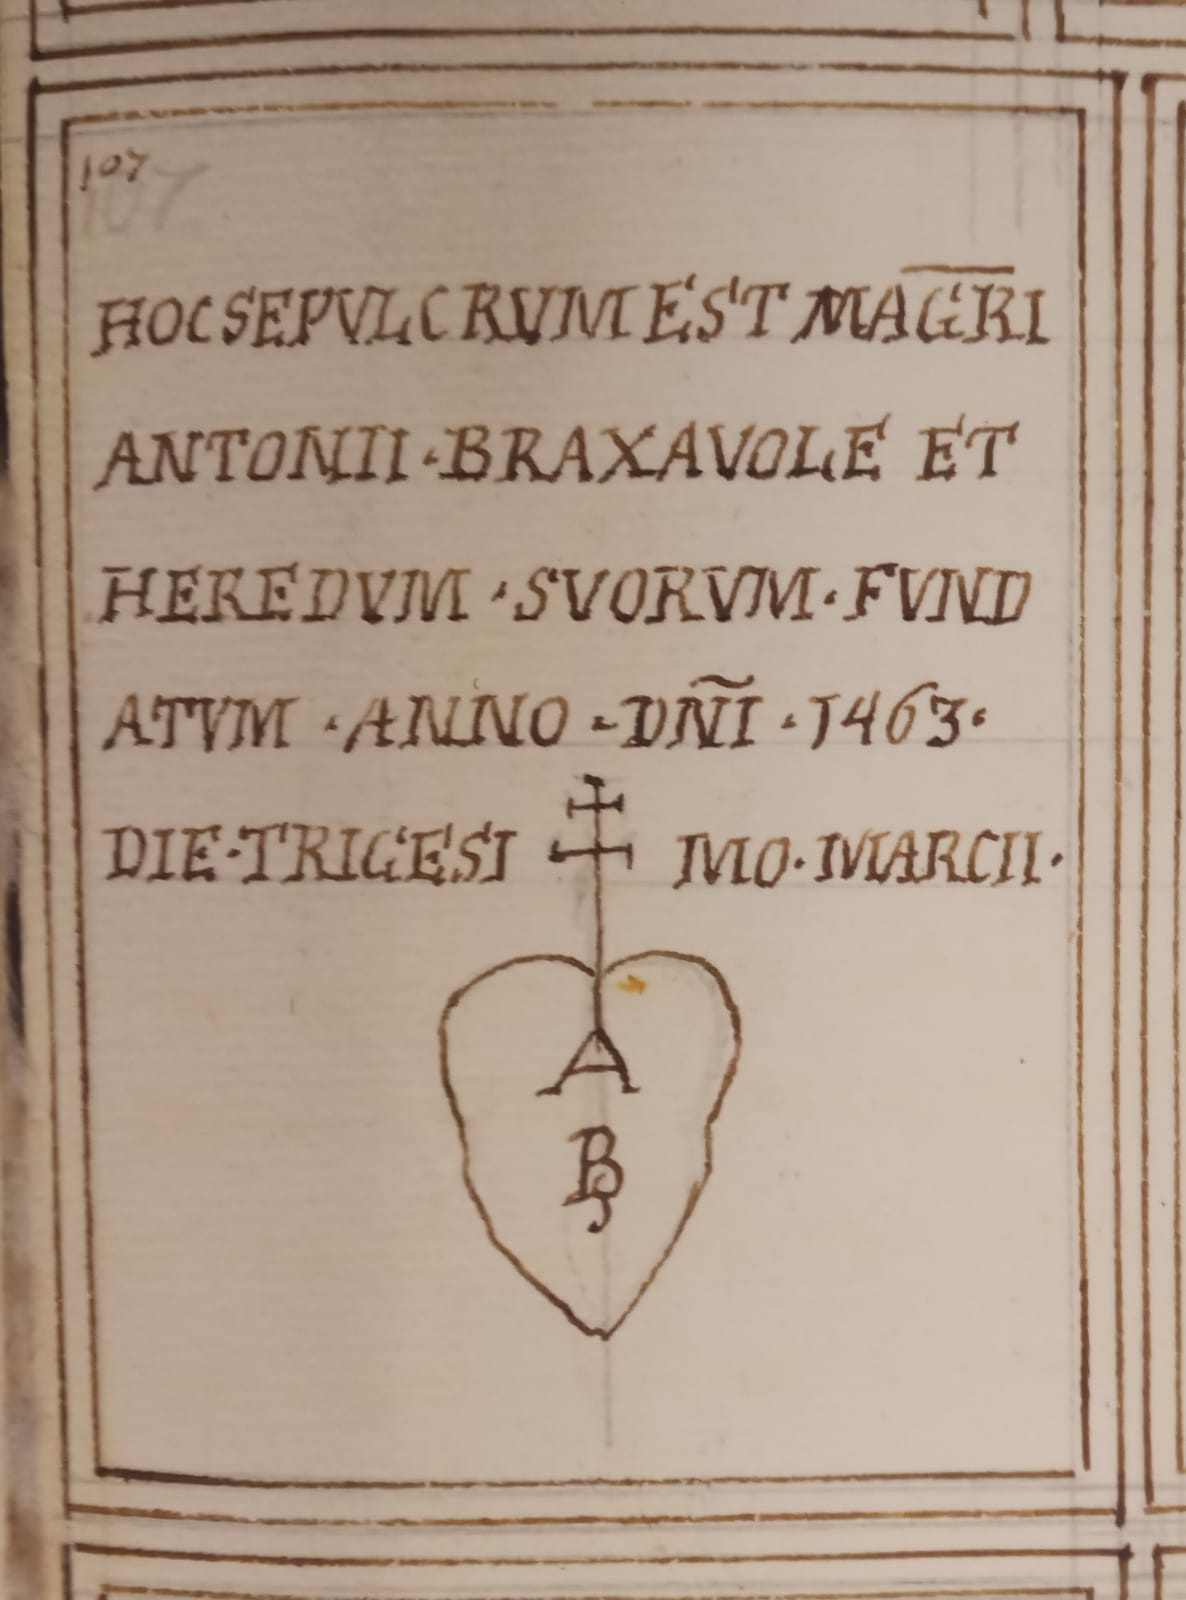 107
107
HOC SEPVLCRVM EST MAG̅R̅I
ANTONII · BRAXAVOLE ET
HEREDVM · SVORVM · FVND
ATVM · ANNO · DÑI · 1463 ·
DIE · TRIGESI MO · MARCII ·
A
B